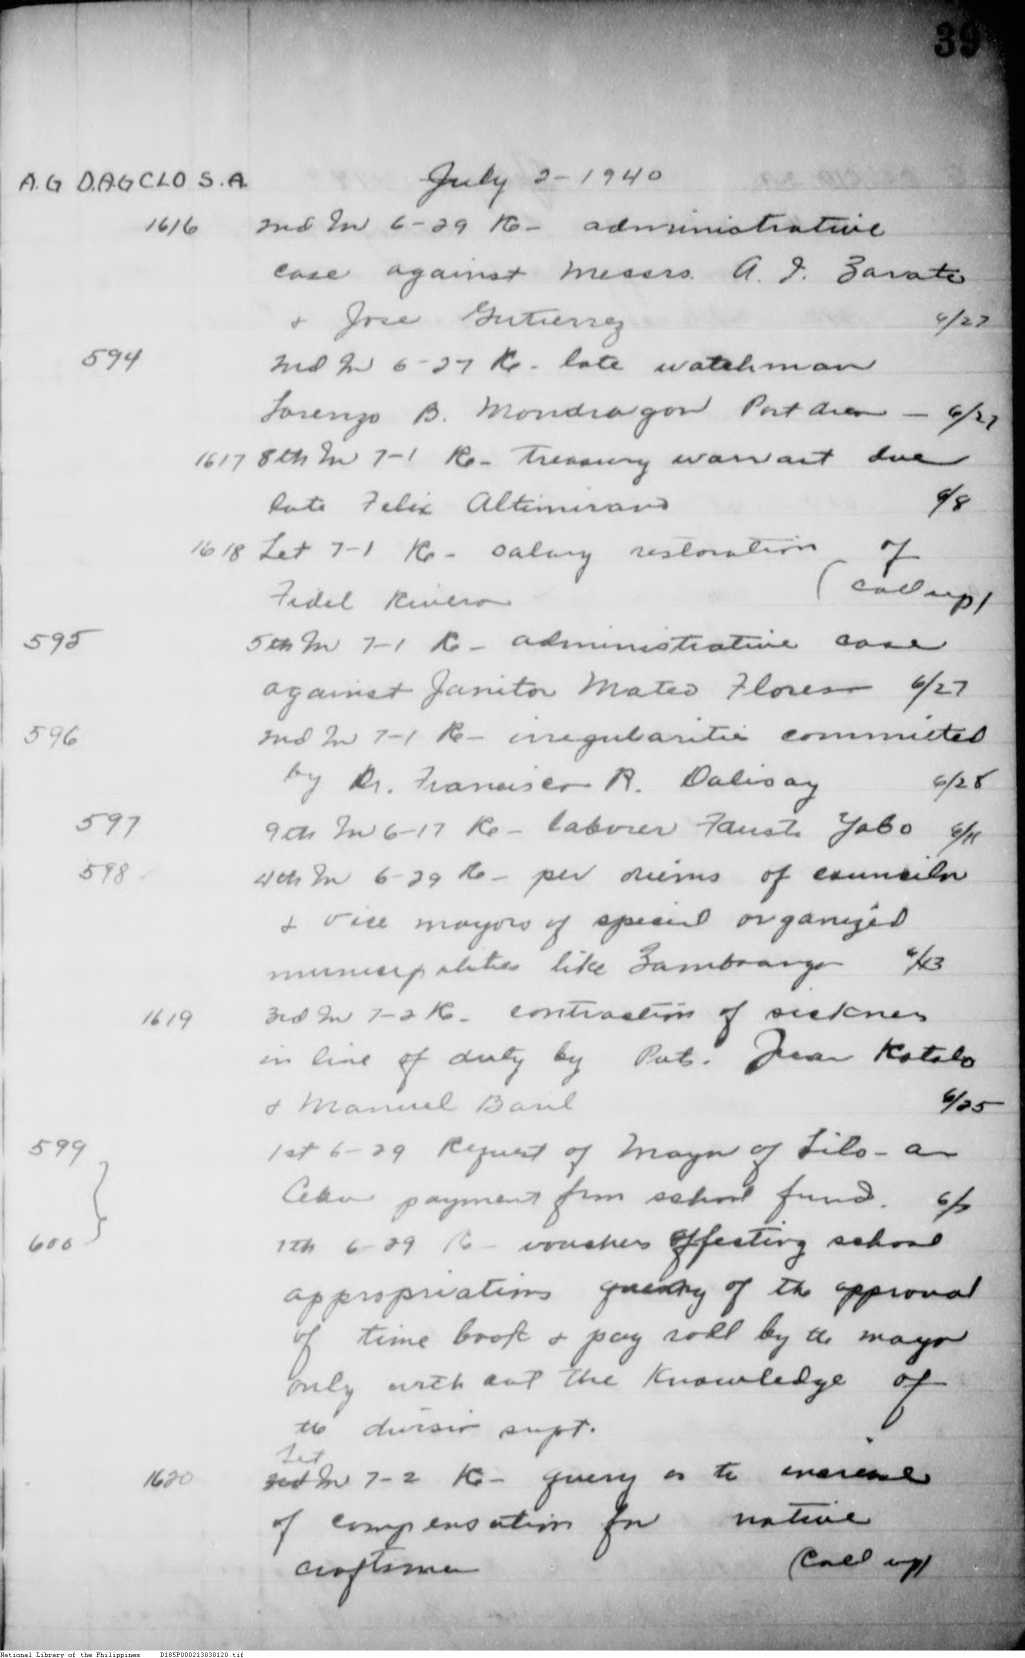 39
A.G D.AG CLO S.A. July 2-1940
1616 2nd In 6-29 Re- administrative
case against Messrs. A. I. Zarate
& Jose Gutierrez 6/27
594 2nd In 6-27 Re- late watchman
Lorenzo B. Mondragon Port Area - 6/27
1617 8th In 7-1 Re- treasury warrant due
late Felix Altimirano 6/8
1618 Let 7-1 Re- salary restoration of
Fidel Rivera (call up)
595 5th In 7-1 Re- administrative case
against Janitor Mateo Flores 6/27
596 2nd In 7-1 Re- irregularities committed
by Dr. Francisco R. Dalisay 6/28
597 9th In 6-17 Re- laborer Fausto Yabo
598 4th In 6-29 Re- per diems of councilor
& vice mayors of special organized
municipalities like Zamboanga 6/13
1619 3rd In 7-2 Re- contraction of sickness
in line of duty by Pvts. Juan Katalo
& Manuel Banl 6/25
599 1st 6-29 Request of Mayor of Lilo-an
Cebu payment from school fund.
600 7th 6-29 Re- vouchers effecting school
appropriations query of the approval
of time book & pay roll by the mayor
only with out the knowledge of
the division supt.
Let
1620 2nd In 7-2 Re- query as to increase
of compensation for native
craftsmen (call up)
National Library of the Philippines D185P000213838120.tif